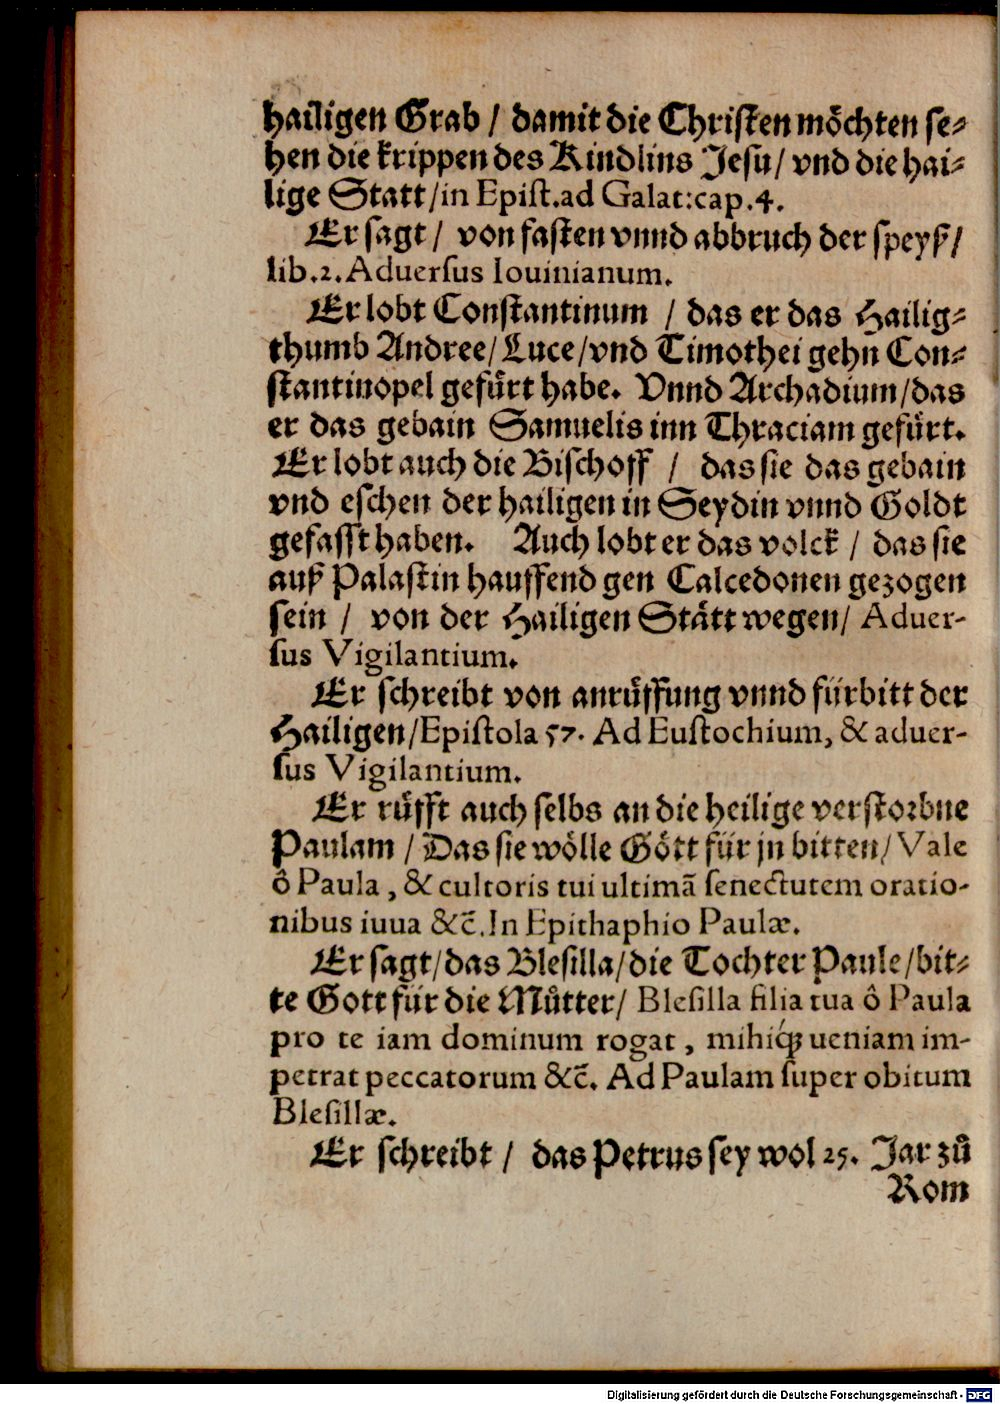 hailigen Grab / damit die Christen möchten se⸗
hen die krippen des Kindlins Jesu / vnd die hai⸗
lige Statt / in Epist. ad Galat: cap. 4.
Er sagt / von fasten vnnd abbruch der speyß /
lib. 2. Aduersus Iouinianum.
Er lobt Constantinum / das er das Hailig⸗
thumb Andree / Luce / vnd Timothei gehn Con⸗
stantinopel gefürt habe. Vnnd Archadium / das
er das gebain Samuelis inn Thraciam gefürt.
Er lobt auch die Bischoff / das sie das gebain
vnd eschen der hailigen in Seydin vnnd Goldt
gefasst haben. Auch lobt er das volck / das sie
auß Palastin hauffend gen Calcedonen gezogen
sein / von der Hailigen Stätt wegen / Aduer-
sus Vigilantium.
Er schreibt von anrůffung vnnd fürbitt der
Hailigen / Epistola 57. Ad Eustochium, & aduer-
sus Vigilantium.
Er růfft auch selbs an die heilige verstorbne
Paulam / Das sie wölle Gött für jn bitten / Vale
ô Paula, & cultoris tui ultimā senectutem oratio-
nibus iuua &c̄. In Epithaphio Paulæ.
Er sagt / das Blesilla / die Tochter Paule / bit⸗
te Gott für die Můtter / Blesilla filia tua ô Paula
pro te iam dominum rogat, mihiq́ꝫ ueniam im-
petrat peccatorum &c̄. Ad Paulam super obitum
Blesillæ.
Er schreibt / das Petrus sey wol 25. Jar zů
Rom
Digitalisierung gefördert durch die Deutsche Forschungsgemeinschaft - DFG